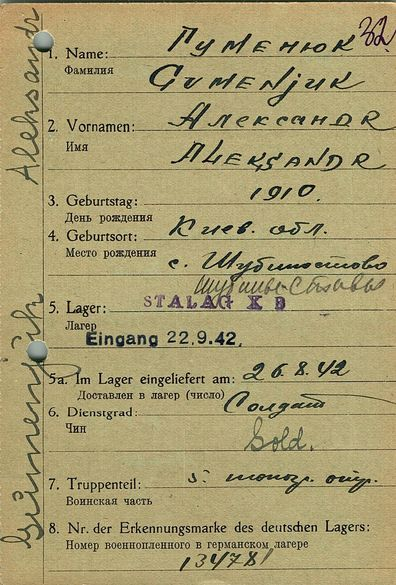 32.
1. Name: Гуменюк
Фамилия
Gumenjuk
2. Vornamen: Александр
Имя
Aleksandr
3. Geburtstag: 1910.
День рождения
4. Geburtsort: Киев. обл.
Место рождения
с.
5. Lager: STALAG X D
Лагер
Eingang 22.9.42.
5a. Im Lager eingeliefert am: 26.8.42
Доставлен в лагер (число)
6. Dienstgrad: Солдат
Чин
Sold.
7. Truppenteil: 5.
Воинская часть
8. Nr. der Erkennungsmarke des deutschen Lagers:
Номер военнопленного в германском лагере
134781
Gumenjuk Aleksandr